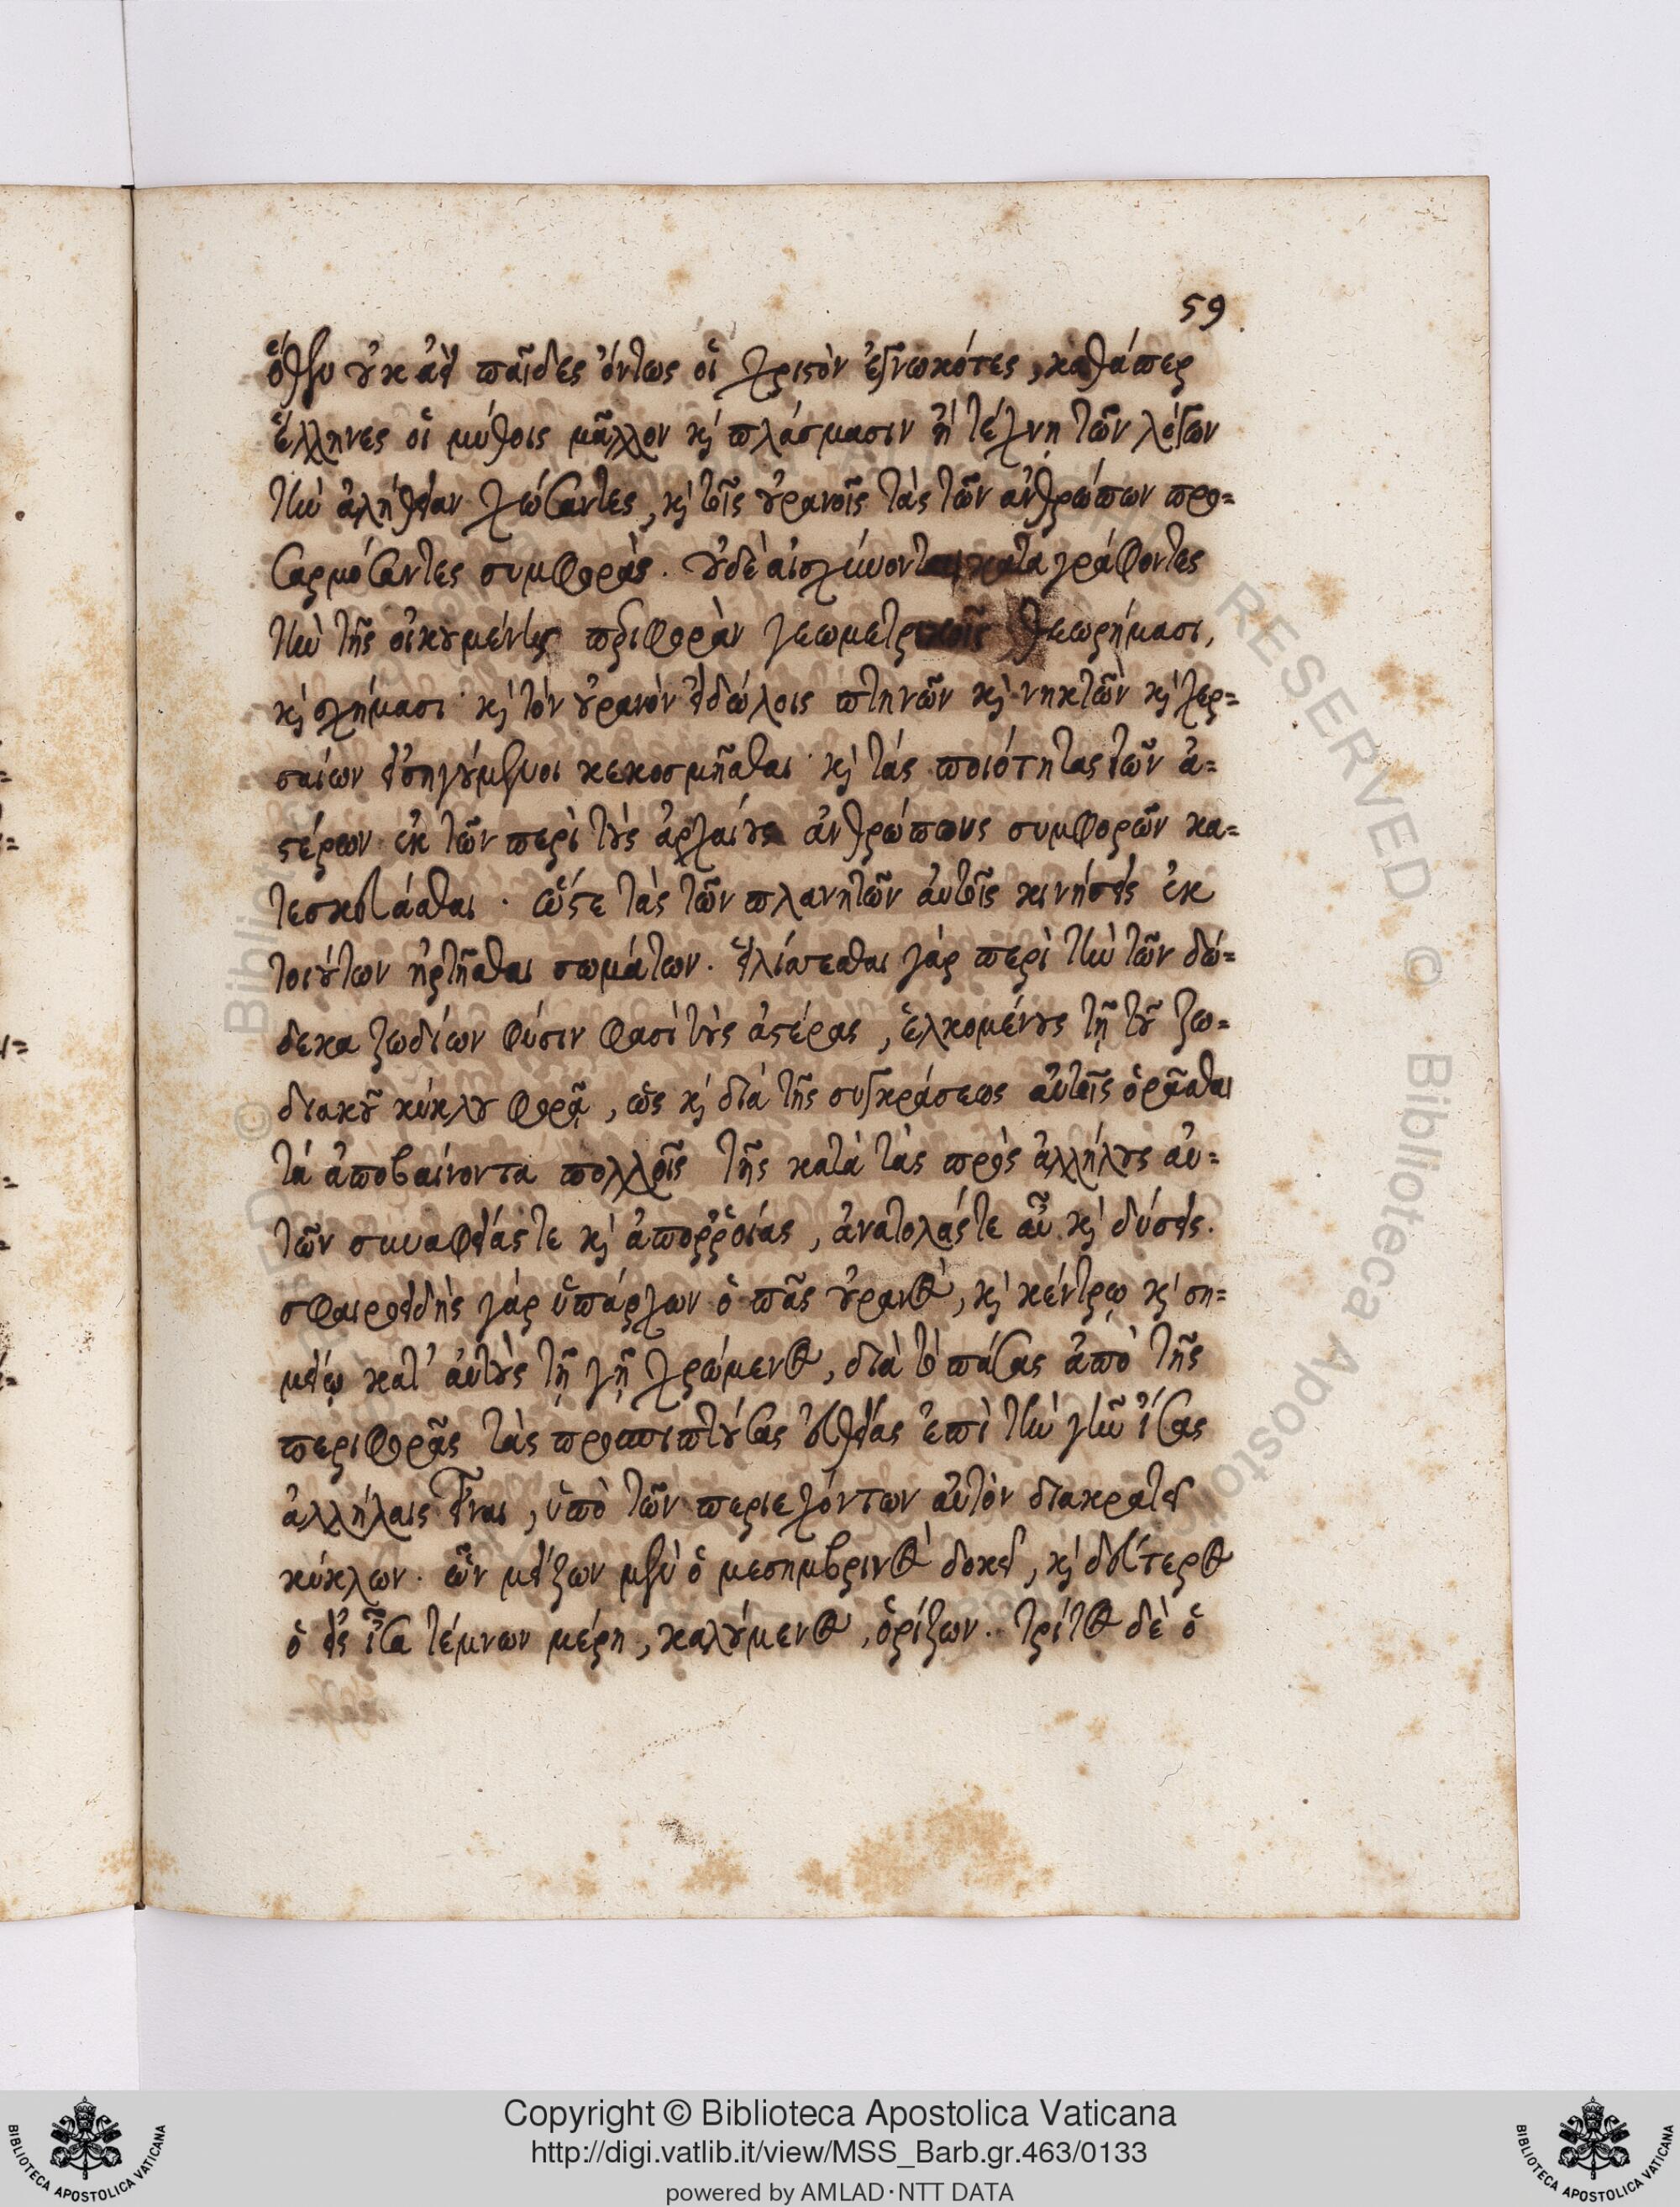 59
ὅθεν οὐκ ἀεὶ παῖδες ὄντως οἱ χριστὸν ἐγνωκότες, καθάπερ
ἕλληνες οἱ μύθοις μᾶλλον καὶ πλάσμασιν ἢ τέχνῃ τῶν λόγων
τὴν ἀλήθειαν χώσαντες, καὶ τοῖς οὐρανοῖς τὰς τῶν ἀνθρώπων προ=
σαρμόσαντες συμφοράς. οὐδὲ αἰσχύνονται καταγράφοντες
τὴν τῆς οἰκουμένης περιφορὰν γεωμετρικοῖς θεωρήμασι,
καὶ σχήμασι· καὶ τὸν οὐρανὸν εἰδώλοις πτηνῶν καὶ νηκτῶν καὶ χερ=
σαίων εἰσηγούμενοι κεκοσμῆσθαι· καὶ τὰς ποιότητας τῶν ἀ=
στέρων ἐκ τῶν περὶ τοὺς ἀρχαίους ἀνθρώπους συμφορῶν κα=
τεσκευάσθαι. ὥστε τὰς τῶν πλανητῶν αὐτοῖς κινήσεις ἐκ
τοιούτων ἠρτῆσθαι σωμάτων. εἱλίσσεσθαι γὰρ περὶ τὴν τῶν δώ=
δεκα ζωδίων φύσιν φασὶ τοὺς ἀστέρας, ἑλκομένους τῇ τοῦ ζω=
διακοῦ κύκλου φορᾷ, ὡς καὶ διὰ τῆς συγκράσεως αὐτοῖς ὁρᾶσθαι
τὰ ἀποβαίνοντα πολλοῖς τῆς κατὰ τὰς πρὸς ἀλλήλους αὐ=
τῶν συναφείάς τε καὶ ἀποῤῥοίας, ἀνατολάς τε αὖ καὶ δύσεις.
σφαιροειδὴς γὰρ ὑπάρχων ὁ πᾶς οὐρανὸς, καὶ κέντρῳ καὶ ση=
μείῳ κατ' αὐτοὺς τῇ γῇ χρώμενος, διὰ τὸ πάσας ἀπὸ τῆς
περιφορᾶς τὰς προσπιπτούσας εὐθείας ἐπὶ τὴν γῆν ἴσας
ἀλλήλαις εἶναι, ὑπὸ τῶν περιεχόντων αὐτὸν διακρατεῖ
κύκλων. ὧν μείζων μὲν ὁ μεσημβρινὸς δοκεῖ, καὶ δεύτερος
ὁ εἰς ἴσα τέμνων μέρη, καλούμενος, ὁρίζων. τρίτος δὲ ὁ
Copyright © Biblioteca Apostolica Vaticana
http://digi.vatlib.it/view/MSS_Barb.gr.463/0133
powered by AMLAD·NTT DATA